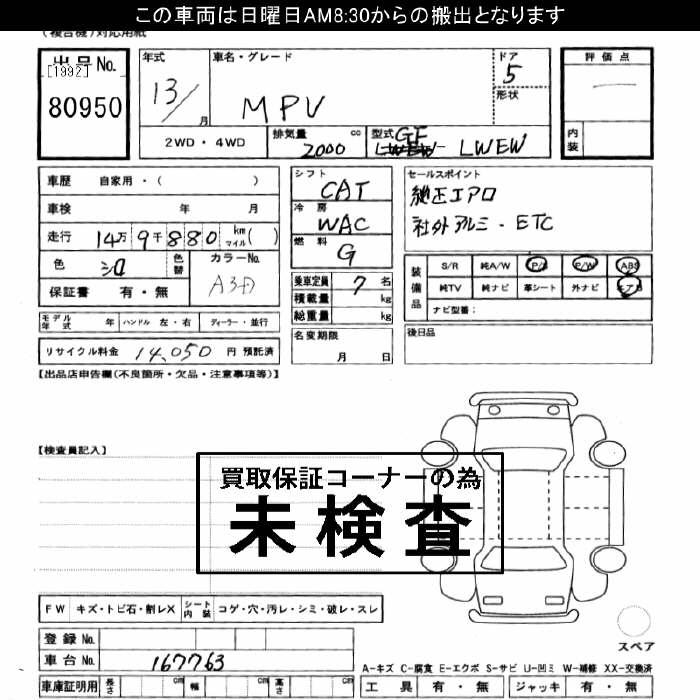 この車両は日曜日AM8:30からの搬出となります
(複合機)対応用紙
出品No.
[1992]
80950
年式
13/
月
車名・グレード
MPV
ドア
5
形状
評価点
内装
2WD・4WD
排気量
cc
2000
型式
GF
LWEW
車歴 自家用・( )
車検 年 月
走行 14万9千880 km マイル( )
色 シロ
色替
カラーNo.
A3D
保証書 有・無
モデル年式 年 ハンドル 左・右 ディーラー・並行
リサイクル料金 14,050 円 預託済
シフト
CAT
冷房
WAC
燃料
G
乗車定員 7 名
積載量 kg
総重量 kg
名変期限
月 日
セールスポイント
純正エアロ
社外アルミ・ETC
装備品
S/R 純A/W P/S P/W ABS
純TV 純ナビ 革シート 外ナビ エアB
ナビ型番:
後日品
【出品店申告欄(不良箇所・欠品・注意事項等)】
【検査員記入】
買取保証コーナーの為
未検査
FW キズ・トビ石・割レX シート内装 コゲ・穴・汚レ・シミ・破レ・スレ
登録No.
車台No. 167763
車庫証明用 長さ cm 幅 cm 高さ cm
スペア
A-キズ C-腐食 E-エクボ S-サビ U-凹ミ W-補修 XX-交換済
工具 有・無 ジャッキ 有・無